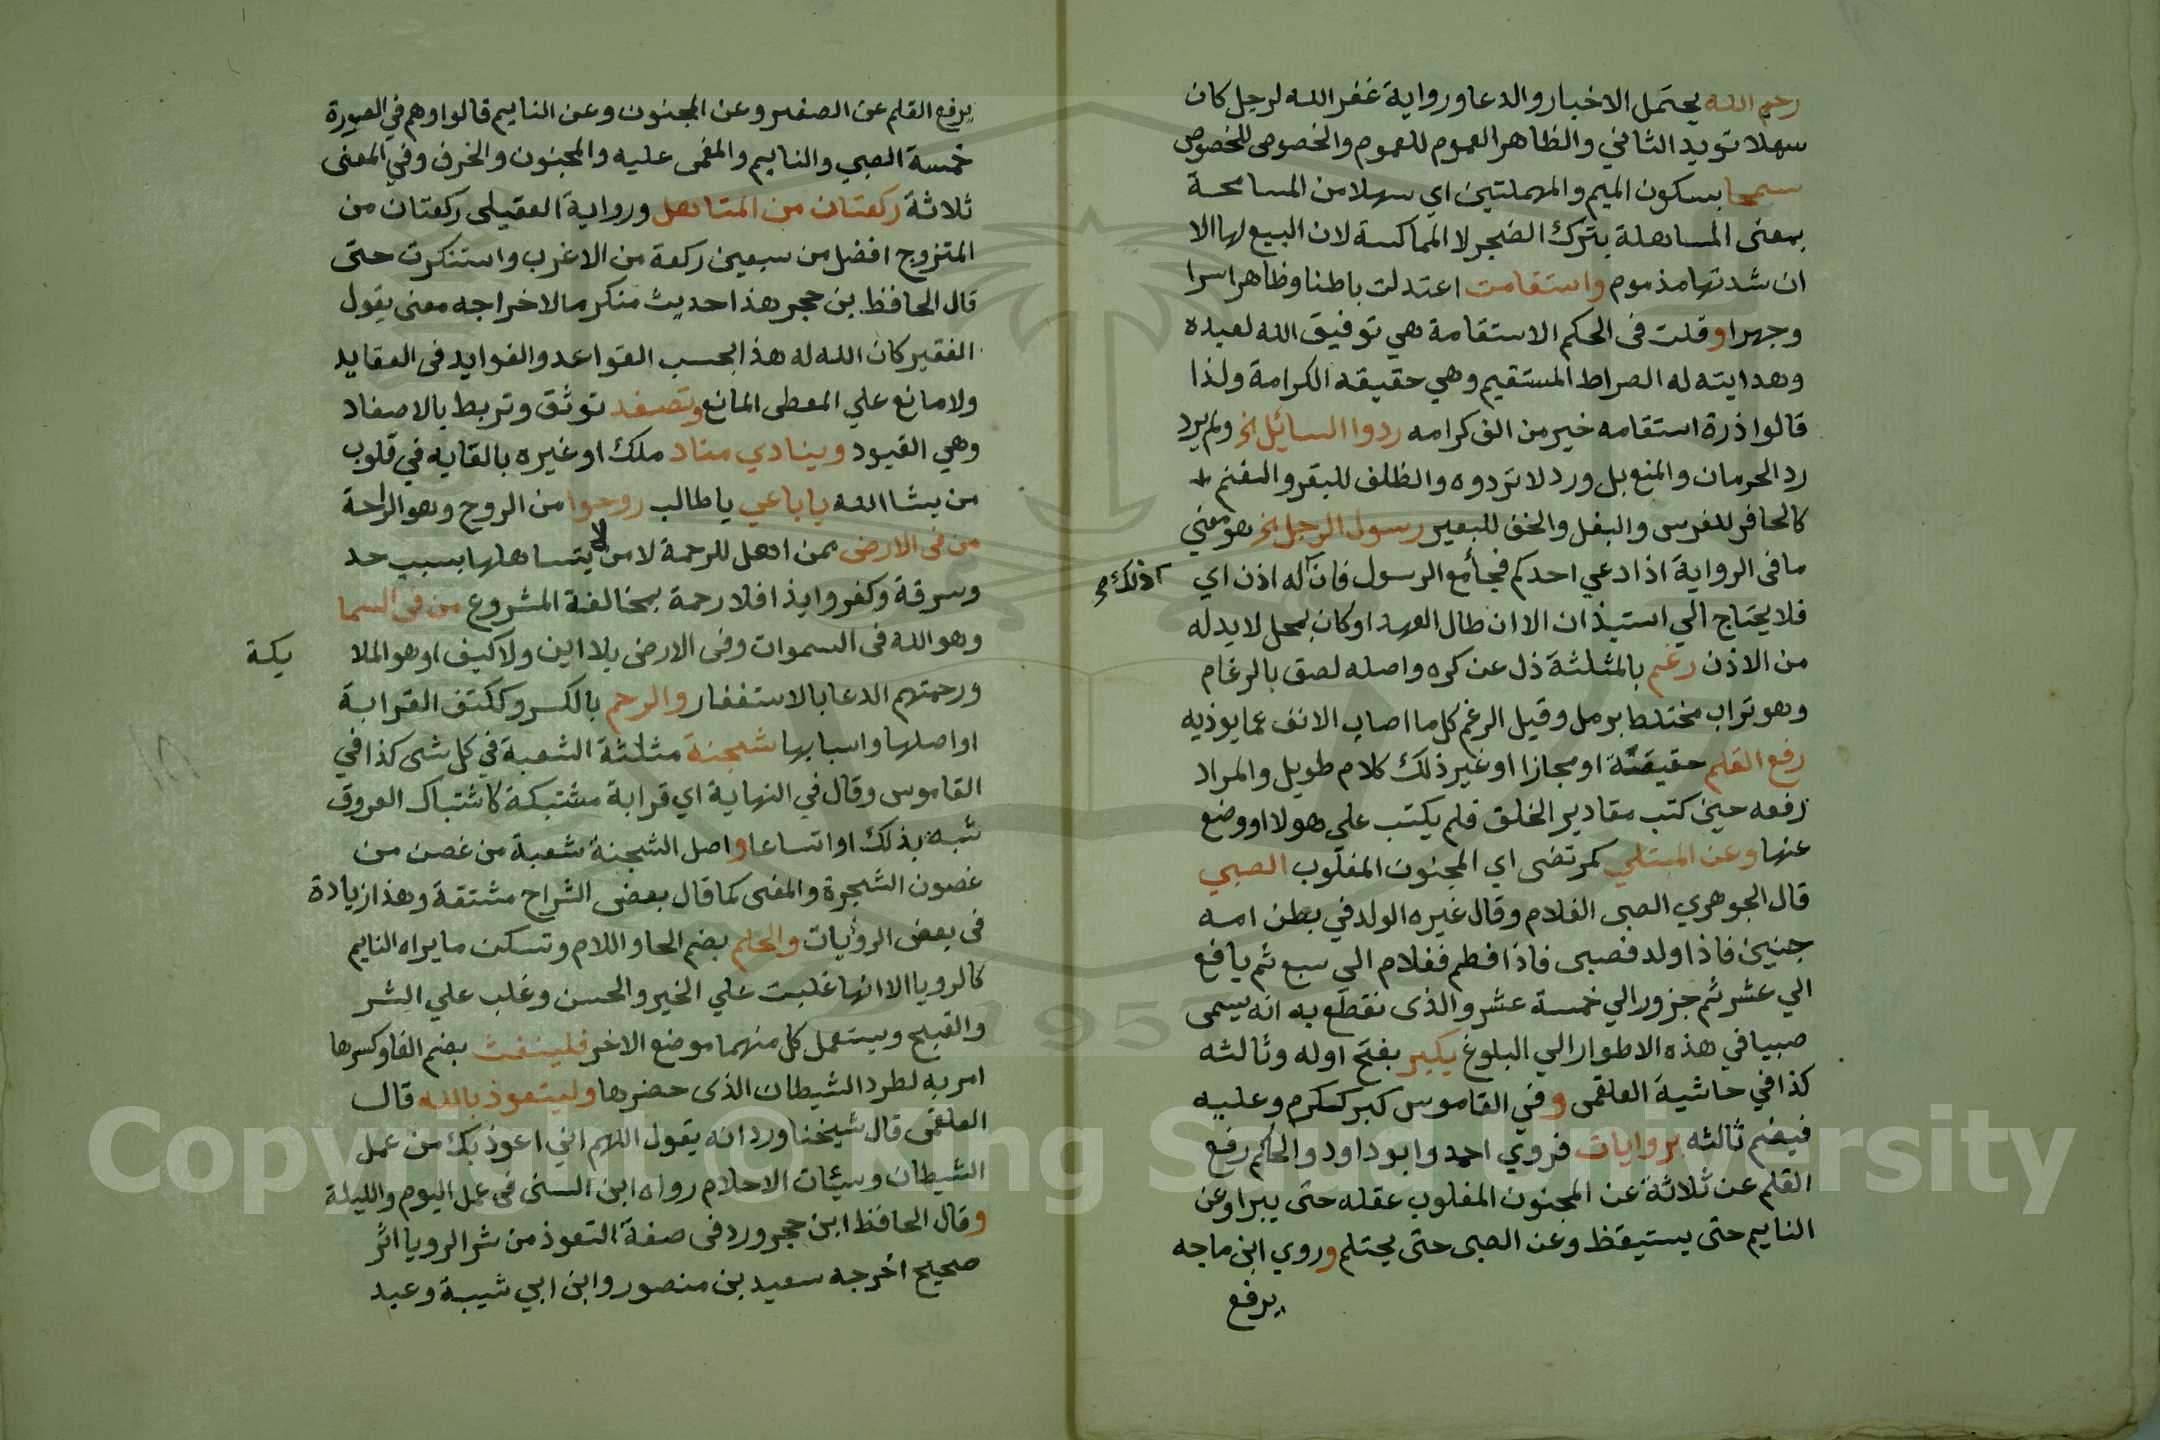 رحم الله يحتمل الاخبار والدعا ورواية غفر الله لرجل كان
سهلا تويد الثاني والظاهر العموم للعموم والخصوص للخصوص
سمحا بسكون الميم والمهملتين اي سهلا من المسامحة
بمعنى المساهلة بترك الضجر لا المماكسة لان البيع لها الا
ان شدتها مذموم واستقامت اعتدلت باطنا وظاهرا سرا
وجهرا وقلت فى الحكم الاستقامة هي توفيق الله لعبده
وهدايته له الصراط المستقيم وهي حقيقه الكرامة ولذا
قالوا ذرة استقامه خير من الف كرامه ردوا السائل الخ ولم يرد
رد الحرمان والمنع بل ورد لا تردوه والظلف للبقر والغنم
كالحافر للفرس والبغل والخف للبعير رسول الرجل الخ هو معني
ما فى الرواية اذا دعي احدكم فجأ مع الرسول فان له اذن اي
ذلك
فلا يحتاج الي استيذان الا ان طال العهد او كان بمحل لا بد له
من الاذن رغم بالمثلثة ذل عن كره واصله لصق بالرغام
وهو تراب مختلط برمل وقيل الرغم كل ما اصاب الانف عما يوذيه
رفع القلم حقيقة او مجازا او غير ذلك كلام طويل والمراد
رفعه حين كتب مقادير الخلق فلم يكتب علي هولا او وضع
عنها وعن المبتلي كمرتضى اي المجنون المغلوب الصبي
قال الجوهري الصبى الغلام وقال غيره الولد في بطن امه
جنين فاذا ولد فصبى فاذا فطم فغلام الي سبع ثم يافع
الي عشر ثم جزور الي خمسة عشر والذى نقطع به انه يسمى
صبيا في هذه الاطوار الي البلوغ يكبر بفتح اوله وثالثه
كذا في حاشية العلقمى وفي القاموس كبر ككرم وعليه
فيضم ثالثه بروايات فروي احمد وابو داود والحاكم رفع
القلم عن ثلاثة عن المجنون المغلوب عقله حتى يبرا وعن
النايم حتى يستيقظ وعن الصبى حتى يحتلم وروي ابن ماجه
يرفع
يرفع القلم عن الصغير وعن المجنون وعن النايم قالوا وهم في الصورة
خمسة الصبي والنايم والمغمى عليه والمجنون والخرف وفي المعنى
ثلاثة ركعتان من المتاهل ورواية العقيلى ركعتان من
المتزوج افضل من سبعين ركعة من الاعزب واستنكرت حتى
قال الحافظ بن حجر هذا حديث منكر ما لاخراجه معنى يقول
الفقير كان الله له هذا بحسب القواعد والفوايد فى العقايد
ولا مانع علي المعطى المانع وتصفد توثق وتربط بالاصفاد
وهي القيود وينادي مناد ملك او غيره بالقايه في قلوب
من يشا الله يا باعي يا طالب روحوا من الروح وهو الراحة
من فى الارض ممن اهل للرحمة لا من لا يتساهلها بسبب حد
وسرقة وكفر وايذا فلا رحمة بمخالفة المشروع من فى السما
وهو الله فى السموات وفى الارض بلا اين ولا كيف او هو الملا
يكة
ورحمتهم الدعا بالاستغفار والرحم بالكسر وككتف القرابة
او اصلها واسبابها شجنة مثلثة الشعبة في كل شى كذا في
القاموس وقال في النهاية اي قرابة مشتبكة كاشتباك العروق
شبه بذلك او اتساعا واصل الشجنة شعبة من غصن من
غصون الشجرة والمعنى كما قال بعض الشراح مشتقة وهذا زيادة
فى بعض الروايات والحلم بضم الحا واللام وتسكن ما يراه النايم
كالرويا الا انها غلبت علي الخير والحسن وغلب علي الشر
والقبيح ويستعمل كل منهما موضع الاخر فلينفث بضم الفا وكسرها
امر به لطرد الشيطان الذى حضرها وليتعوذ بالله قال
العلقمى قال شيخنا ورد انه يقول اللهم اني اعوذ بك من عمل
الشيطان وسيئات الاحلام رواه ابن السنى فى عمل اليوم والليلة
وقال الحافظ ابن حجر ورد فى صفة التعوذ من شر الرويا اثر
صحيح اخرجه سعيد بن منصور وابن ابي شيبة وعبد
Copyright © King Saud University
1957